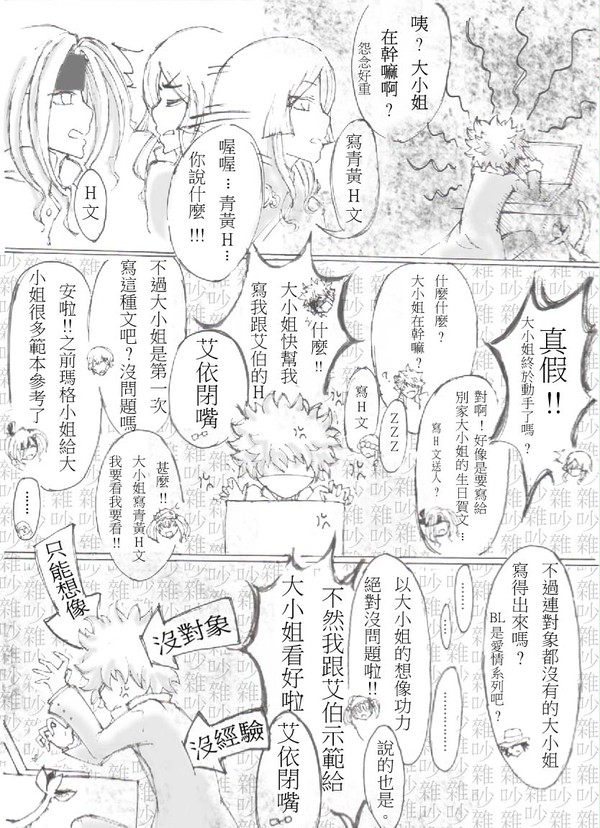 咦？大小姐
在幹嘛啊？
怨念好重
寫青黃H文
喔喔…青黃H…
你說什麼!!!
H文
真假!!
大小姐終於動手了嗎？
什麼什麼？
大小姐在幹嘛？
對啊！好像是要寫給
別家大小姐的生日賀文…
寫H文送人？
ZZZ
寫H文
什麼!!
大小姐快幫我
寫我跟艾伯的H
艾依閉嘴
不過大小姐是第一次
寫這種文吧？沒問題嗎
安啦!!之前瑪格小姐給大
小姐很多範本參考了
甚麼!!
大小姐寫青黃H文
我要看我要看!!
……
不過連對象都沒有的大小姐
寫得出來嗎？
BL是愛情系列吧？
……
……
以大小姐的想像功力
絕對沒問題啦!!
說的也是。
不然我跟艾伯示範給
大小姐看好啦
艾依閉嘴
只能想像
沒對象
沒經驗
吵雜吵雜吵雜